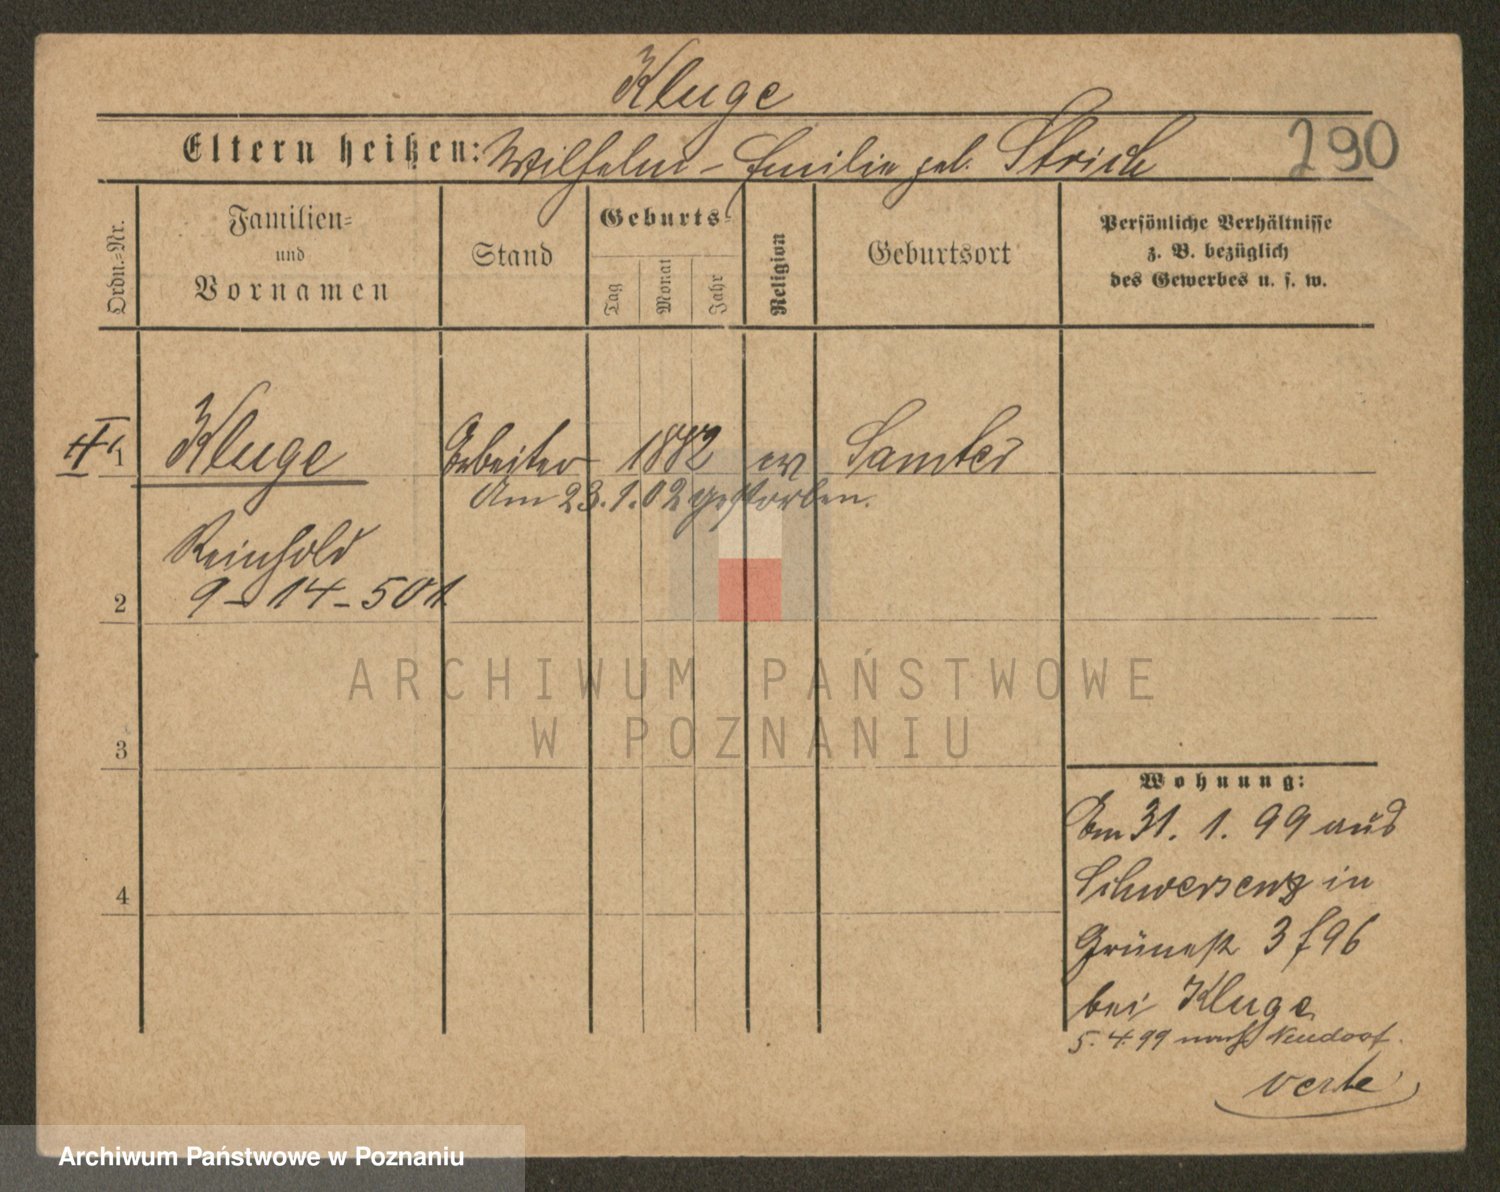 Kluge
Eltern heißen: Wilhelm - Emilie geb. Strich
290
Ordn.-Nr.
Familien-
und
Vornamen
Stand
Geburts-
Tag
Monat
Jahr
Religion
Geburtsort
Persönliche Verhältnisse
z. B. bezüglich
des Gewerbes u. s. w.
1
Kluge Arbeiter 1882 ev Samter
Am 23.1.02 gestorben.
Reinhold
9-14-501.
2
3
4
Wohnung:
Am 31. 1. 99 aus
Schwersenz in
Grünestr 3 f 96
bei Kluge
5.4.99 nach Neudorf.
verte
ARCHIWUM PAŃSTWOWE
W POZNANIU
Archiwum Państwowe w Poznaniu